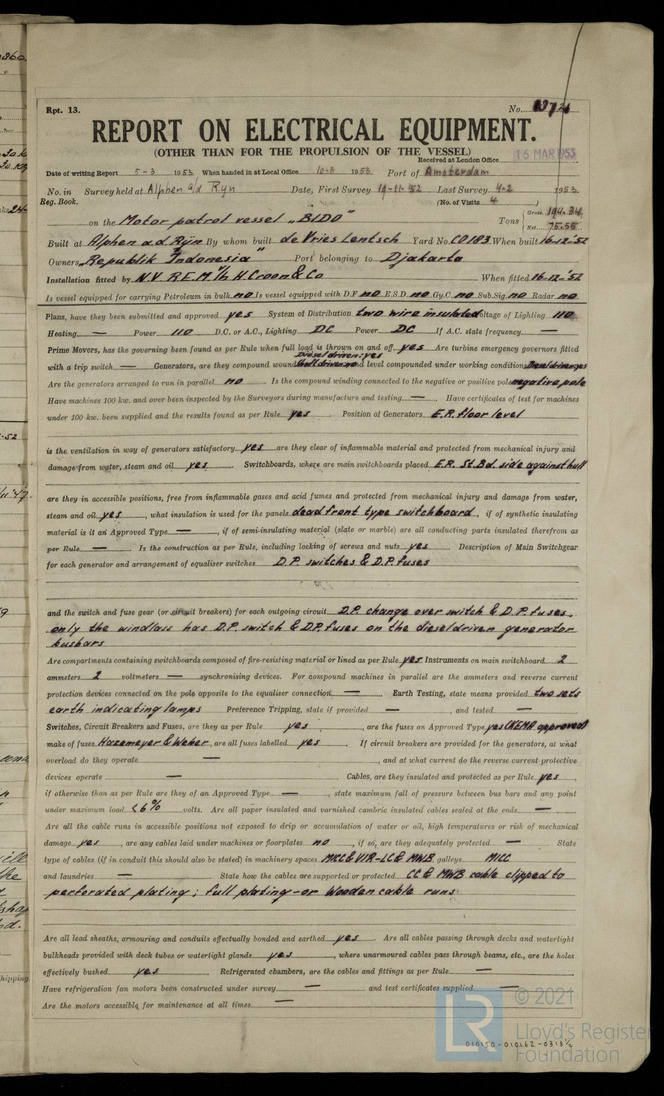 Rpt. 13.
No.
REPORT ON ELECTRICAL EQUIPMENT.
(OTHER THAN FOR THE PROPULSION OF THE VESSEL)
Received at London Office 16 MAR 1953
Date of writing Report 5-3 1953 When handed in at Local Office 10-3 1953 Port of Amsterdam
No. in Survey held at Alphen a/d Ryn Date, First Survey 19-11-'52 Last Survey 4-2 1953
Reg. Book. (No. of Visits 4
on the Motor patrol vessel „BIDO" Tons Gross 194.34 Net 75.55
Built at Alphen a.d. Rÿn By whom built de Vries Lentsch Yard No. CO183 When built 16-12-'52
Owners „Republik Indonesia" Port belonging to Djakarta
Installation fitted by N.V. R.E.M. v/h H. Croon & Co When fitted 16-12-'52
Is vessel equipped for carrying Petroleum in bulk no Is vessel equipped with D.F. no E.S.D. no Gy.C. no Sub.Sig. no Radar no
Plans, have they been submitted and approved yes System of Distribution two wire insulated Voltage of Lighting 110
Heating — Power 110 D.C. or A.C., Lighting DC Power DC If A.C. state frequency —
Prime Movers, has the governing been found as per Rule when full load is thrown on and off yes Are turbine emergency governors fitted
with a trip switch — Generators, are they compound wound Dieseldriven: yes level compounded under working conditions
Are the generators arranged to run in parallel no Is the compound winding connected to the negative or positive pole negative pole
Have machines 100 kw. and over been inspected by the Surveyors during manufacture and testing — Have certificates of test for machines
under 100 kw. been supplied and the results found as per Rule yes Position of Generators E.R. floor level
is the ventilation in way of generators satisfactory yes are they clear of inflammable material and protected from mechanical injury and
damage from water, steam and oil yes Switchboards, where are main switchboards placed E.R. St.Bd. side against hull
are they in accessible positions, free from inflammable gases and acid fumes and protected from mechanical injury and damage from water,
steam and oil yes, what insulation is used for the panels dead front type switchboard, if of synthetic insulating
material is it an Approved Type —, if of semi-insulating material (slate or marble) are all conducting parts insulated therefrom as
per Rule — Is the construction as per Rule, including locking of screws and nuts yes Description of Main Switchgear
for each generator and arrangement of equaliser switches D.P. switches & D.P. fuses
and the switch and fuse gear (or circuit breakers) for each outgoing circuit D.P. change over switch & D.P. fuses,
only the windlass has D.P. switch & D.P. fuses on the dieseldriven generator
busbars
Are compartments containing switchboards composed of fire-resisting material or lined as per Rule yes Instruments on main switchboard 2
ammeters 2 voltmeters — synchronising devices. For compound machines in parallel are the ammeters and reverse current
protection devices connected on the pole opposite to the equaliser connection — Earth Testing, state means provided two sets
earth indicating lamps Preference Tripping, state if provided —, and tested —
Switches, Circuit Breakers and Fuses, are they as per Rule yes, are the fuses an Approved Type yes (KEMA approved)
make of fuses Hazemeyer & Weber, are all fuses labelled yes If circuit breakers are provided for the generators, at what
overload do they operate —, and at what current do the reverse current protective
devices operate — Cables, are they insulated and protected as per Rule yes,
if otherwise than as per Rule are they of an Approved Type —, state maximum fall of pressure between bus bars and any point
under maximum load <6% volts. Are all paper insulated and varnished cambric insulated cables sealed at the ends —
Are all the cable runs in accessible positions not exposed to drip or accumulation of water or oil, high temperatures or risk of mechanical
damage yes, are any cables laid under machines or floorplates no, if so, are they adequately protected — State
type of cables (if in conduit this should also be stated) in machinery spaces MICC & VIR-LC & MWB galleys MICC
and laundries — State how the cables are supported or protected CC & MWB cable clipped to
perforated plating; full plating - or Wooden cable runs
Are all lead sheaths, armouring and conduits effectually bonded and earthed yes Are all cables passing through decks and watertight
bulkheads provided with deck tubes or watertight glands yes, where unarmoured cables pass through beams, etc., are the holes
effectively bushed yes Refrigerated chambers, are the cables and fittings as per Rule —
Have refrigeration fan motors been constructed under survey — and test certificates supplied —
Are the motors accessible for maintenance at all times —
© 2021
LR Lloyd's Register
Foundation
010150-010162-0313¼